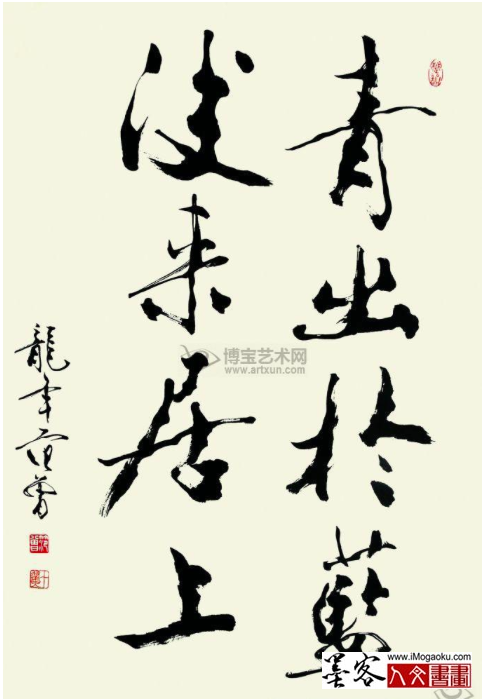 青出於藍
後来居上
龍年范曾
博宝艺术网
www.artxun.com
www.iMogaoku.com
墨客
人文書畫